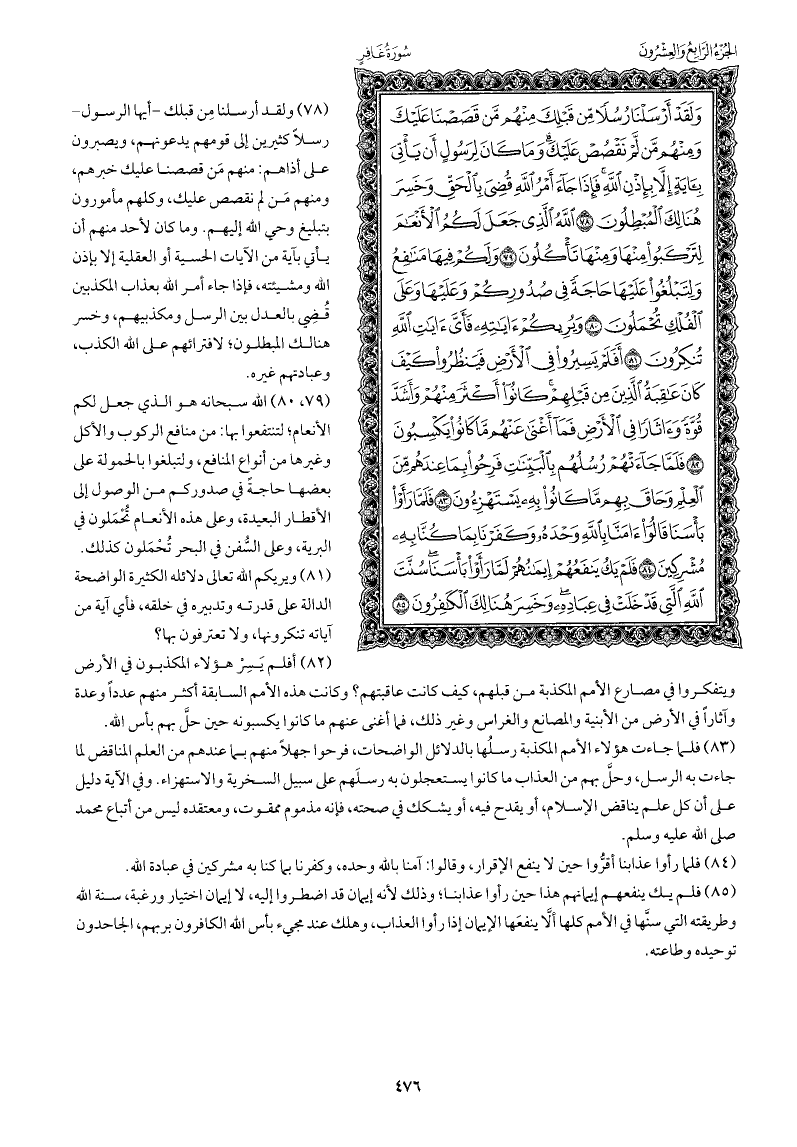 الجزء الرابع والعشرون
سورة غافر
وَلَقَدْ أَرْسَلْنَا رُسُلًا مِّن قَبْلِكَ مِنْهُم مَّن قَصَصْنَا عَلَيْكَ
وَمِنْهُم مَّن لَّمْ نَقْصُصْ عَلَيْكَ ۗ وَمَا كَانَ لِرَسُولٍ أَن يَأْتِيَ
بِـَٔايَةٍ إِلَّا بِإِذْنِ ٱللَّهِ ۚ فَإِذَا جَآءَ أَمْرُ ٱللَّهِ قُضِيَ بِٱلْحَقِّ وَخَسِرَ
هُنَالِكَ ٱلْمُبْطِلُونَ ٧٨ ٱللَّهُ ٱلَّذِي جَعَلَ لَكُمُ ٱلْأَنْعَٰمَ
لِتَرْكَبُوا۟ مِنْهَا وَمِنْهَا تَأْكُلُونَ ٧٩ وَلَكُمْ فِيهَا مَنَٰفِعُ
وَلِتَبْلُغُوا۟ عَلَيْهَا حَاجَةً فِي صُدُورِكُمْ وَعَلَيْهَا وَعَلَى
ٱلْفُلْكِ تُحْمَلُونَ ٨٠ وَيُرِيكُمْ ءَايَٰتِهِۦ فَأَيَّ ءَايَٰتِ ٱللَّهِ
تُنكِرُونَ ٨١ أَفَلَمْ يَسِيرُوا۟ فِي ٱلْأَرْضِ فَيَنظُرُوا۟ كَيْفَ
كَانَ عَٰقِبَةُ ٱلَّذِينَ مِن قَبْلِهِمْ ۚ كَانُوٓا۟ أَكْثَرَ مِنْهُمْ وَأَشَدَّ
قُوَّةً وَءَاثَارًا فِي ٱلْأَرْضِ فَمَآ أَغْنَىٰ عَنْهُم مَّا كَانُوا۟ يَكْسِبُونَ
٨٢ فَلَمَّا جَآءَتْهُمْ رُسُلُهُم بِٱلْبَيِّنَٰتِ فَرِحُوا۟ بِمَا عِندَهُم مِّنَ
ٱلْعِلْمِ وَحَاقَ بِهِم مَّا كَانُوا۟ بِهِۦ يَسْتَهْزِءُونَ ٨٣ فَلَمَّا رَأَوْا۟
بَأْسَنَا قَالُوٓا۟ ءَامَنَّا بِٱللَّهِ وَحْدَهُۥ وَكَفَرْنَا بِمَا كُنَّا بِهِۦ
مُشْرِكِينَ ٨٤ فَلَمْ يَكُ يَنفَعُهُمْ إِيمَٰنُهُمْ لَمَّا رَأَوْا۟ بَأْسَنَا ۖ سُنَّتَ
ٱللَّهِ ٱلَّتِي قَدْ خَلَتْ فِي عِبَادِهِۦ ۖ وَخَسِرَ هُنَالِكَ ٱلْكَٰفِرُونَ ٨٥
(٧٨) ولقد أرسلنا مِن قبلك -أيها الرسول-
رسلاً كثيرين إلى قومهم يدعونهم، ويصبرون
على أذاهم: منهم مَن قصصنا عليك خبرهم،
ومنهم مَن لم نقصص عليك، وكلهم مأمورون
بتبليغ وحي الله إليهم. وما كان لأحد منهم أن
يأتي بآية من الآيات الحسية أو العقلية إلا بإذن
الله ومشيئته، فإذا جاء أمر الله بعذاب المكذبين
قُضِي بالعدل بين الرسل ومكذبيهم، وخسر
هنالك المبطلون؛ لافترائهم على الله الكذب،
وعبادتهم غيره.
(٧٩، ٨٠) الله سبحانه هو الذي جعل لكم
الأنعام؛ لتنتفعوا بها: من منافع الركوب والأكل
وغيرها من أنواع المنافع، ولتبلغوا بالحمولة على
بعضها حاجةً في صدوركم من الوصول إلى
الأقطار البعيدة، وعلى هذه الأنعام تُحْمَلون في
البرية، وعلى السُّفن في البحر تُحْمَلون كذلك.
(٨١) ويريكم الله تعالى دلائله الكثيرة الواضحة
الدالة على قدرته وتدبيره في خلقه، فأي آية من
آياته تنكرونها، ولا تعترفون بها؟
(٨٢) أفلم يَسِرْ هؤلاء المكذبون في الأرض
ويتفكروا في مصارع الأمم المكذبة من قبلهم، كيف كانت عاقبتهم؟ وكانت هذه الأمم السابقة أكثر منهم عدداً وعدة
وآثاراً في الأرض من الأبنية والمصانع والغراس وغير ذلك، فما أغنى عنهم ما كانوا يكسبونه حين حلَّ بهم بأس الله.
(٨٣) فلما جاءت هؤلاء الأمم المكذبة رسلُها بالدلائل الواضحات، فرحوا جهلاً منهم بما عندهم من العلم المناقض لما
جاءت به الرسل، وحلَّ بهم من العذاب ما كانوا يستعجلون به رسلَهم على سبيل السخرية والاستهزاء. وفي الآية دليل
على أن كل علم يناقض الإسلام، أو يقدح فيه، أو يشكك في صحته، فإنه مذموم ممقوت، ومعتقده ليس من أتباع محمد
صلى الله عليه وسلم.
(٨٤) فلما رأوا عذابنا أقرُّوا حين لا ينفع الإقرار، وقالوا: آمنا بالله وحده، وكفرنا بما كنا به مشركين في عبادة الله.
(٨٥) فلم يك ينفعهم إيمانهم هذا حين رأوا عذابنا؛ وذلك لأنه إيمان قد اضطروا إليه، لا إيمان اختيار ورغبة، سنة الله
وطريقته التي سنَّها في الأمم كلها ألَّا ينفعَها الإيمان إذا رأوا العذاب، وهلك عند مجيء بأس الله الكافرون بربهم، الجاحدون
توحيده وطاعته.
٤٧٦